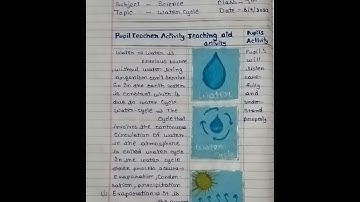 Subject - Science Class - 7th
Topic - Water Cycle Date -
Pupil Teacher Activity Teaching aid activity Pupils Activity
Water → Water is
precious source
without water living
organism can't survive
So In the earth water
is construct which is
due to water Cycle
Water-cycle → The
Cycle that
involves the continuous
Circulation of water
in the atmosphere
is called water cycle
In the water cycle
three process occurs
Evaporation, Conden-
sation, precipitation
Evaporation → It is
Water
Water
Cycle
Pupils
will
listen
care-
fully
and
under-
stand
properly